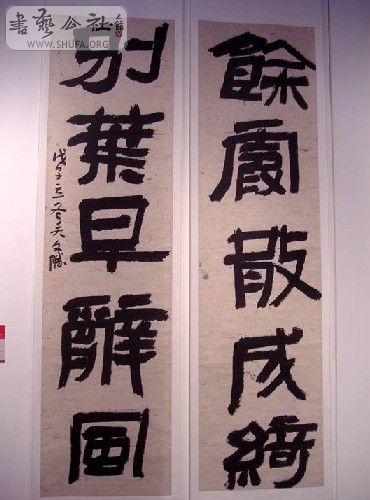 書藝公社
WWW.SHUFA.ORG
餘霞散成綺
別葉早辭風
戊子立春